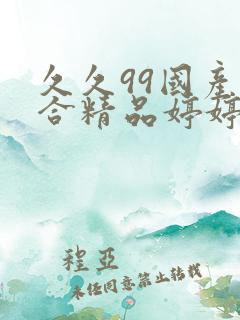 久久99国产
合精品婷婷
程亚
未经同意禁止转载